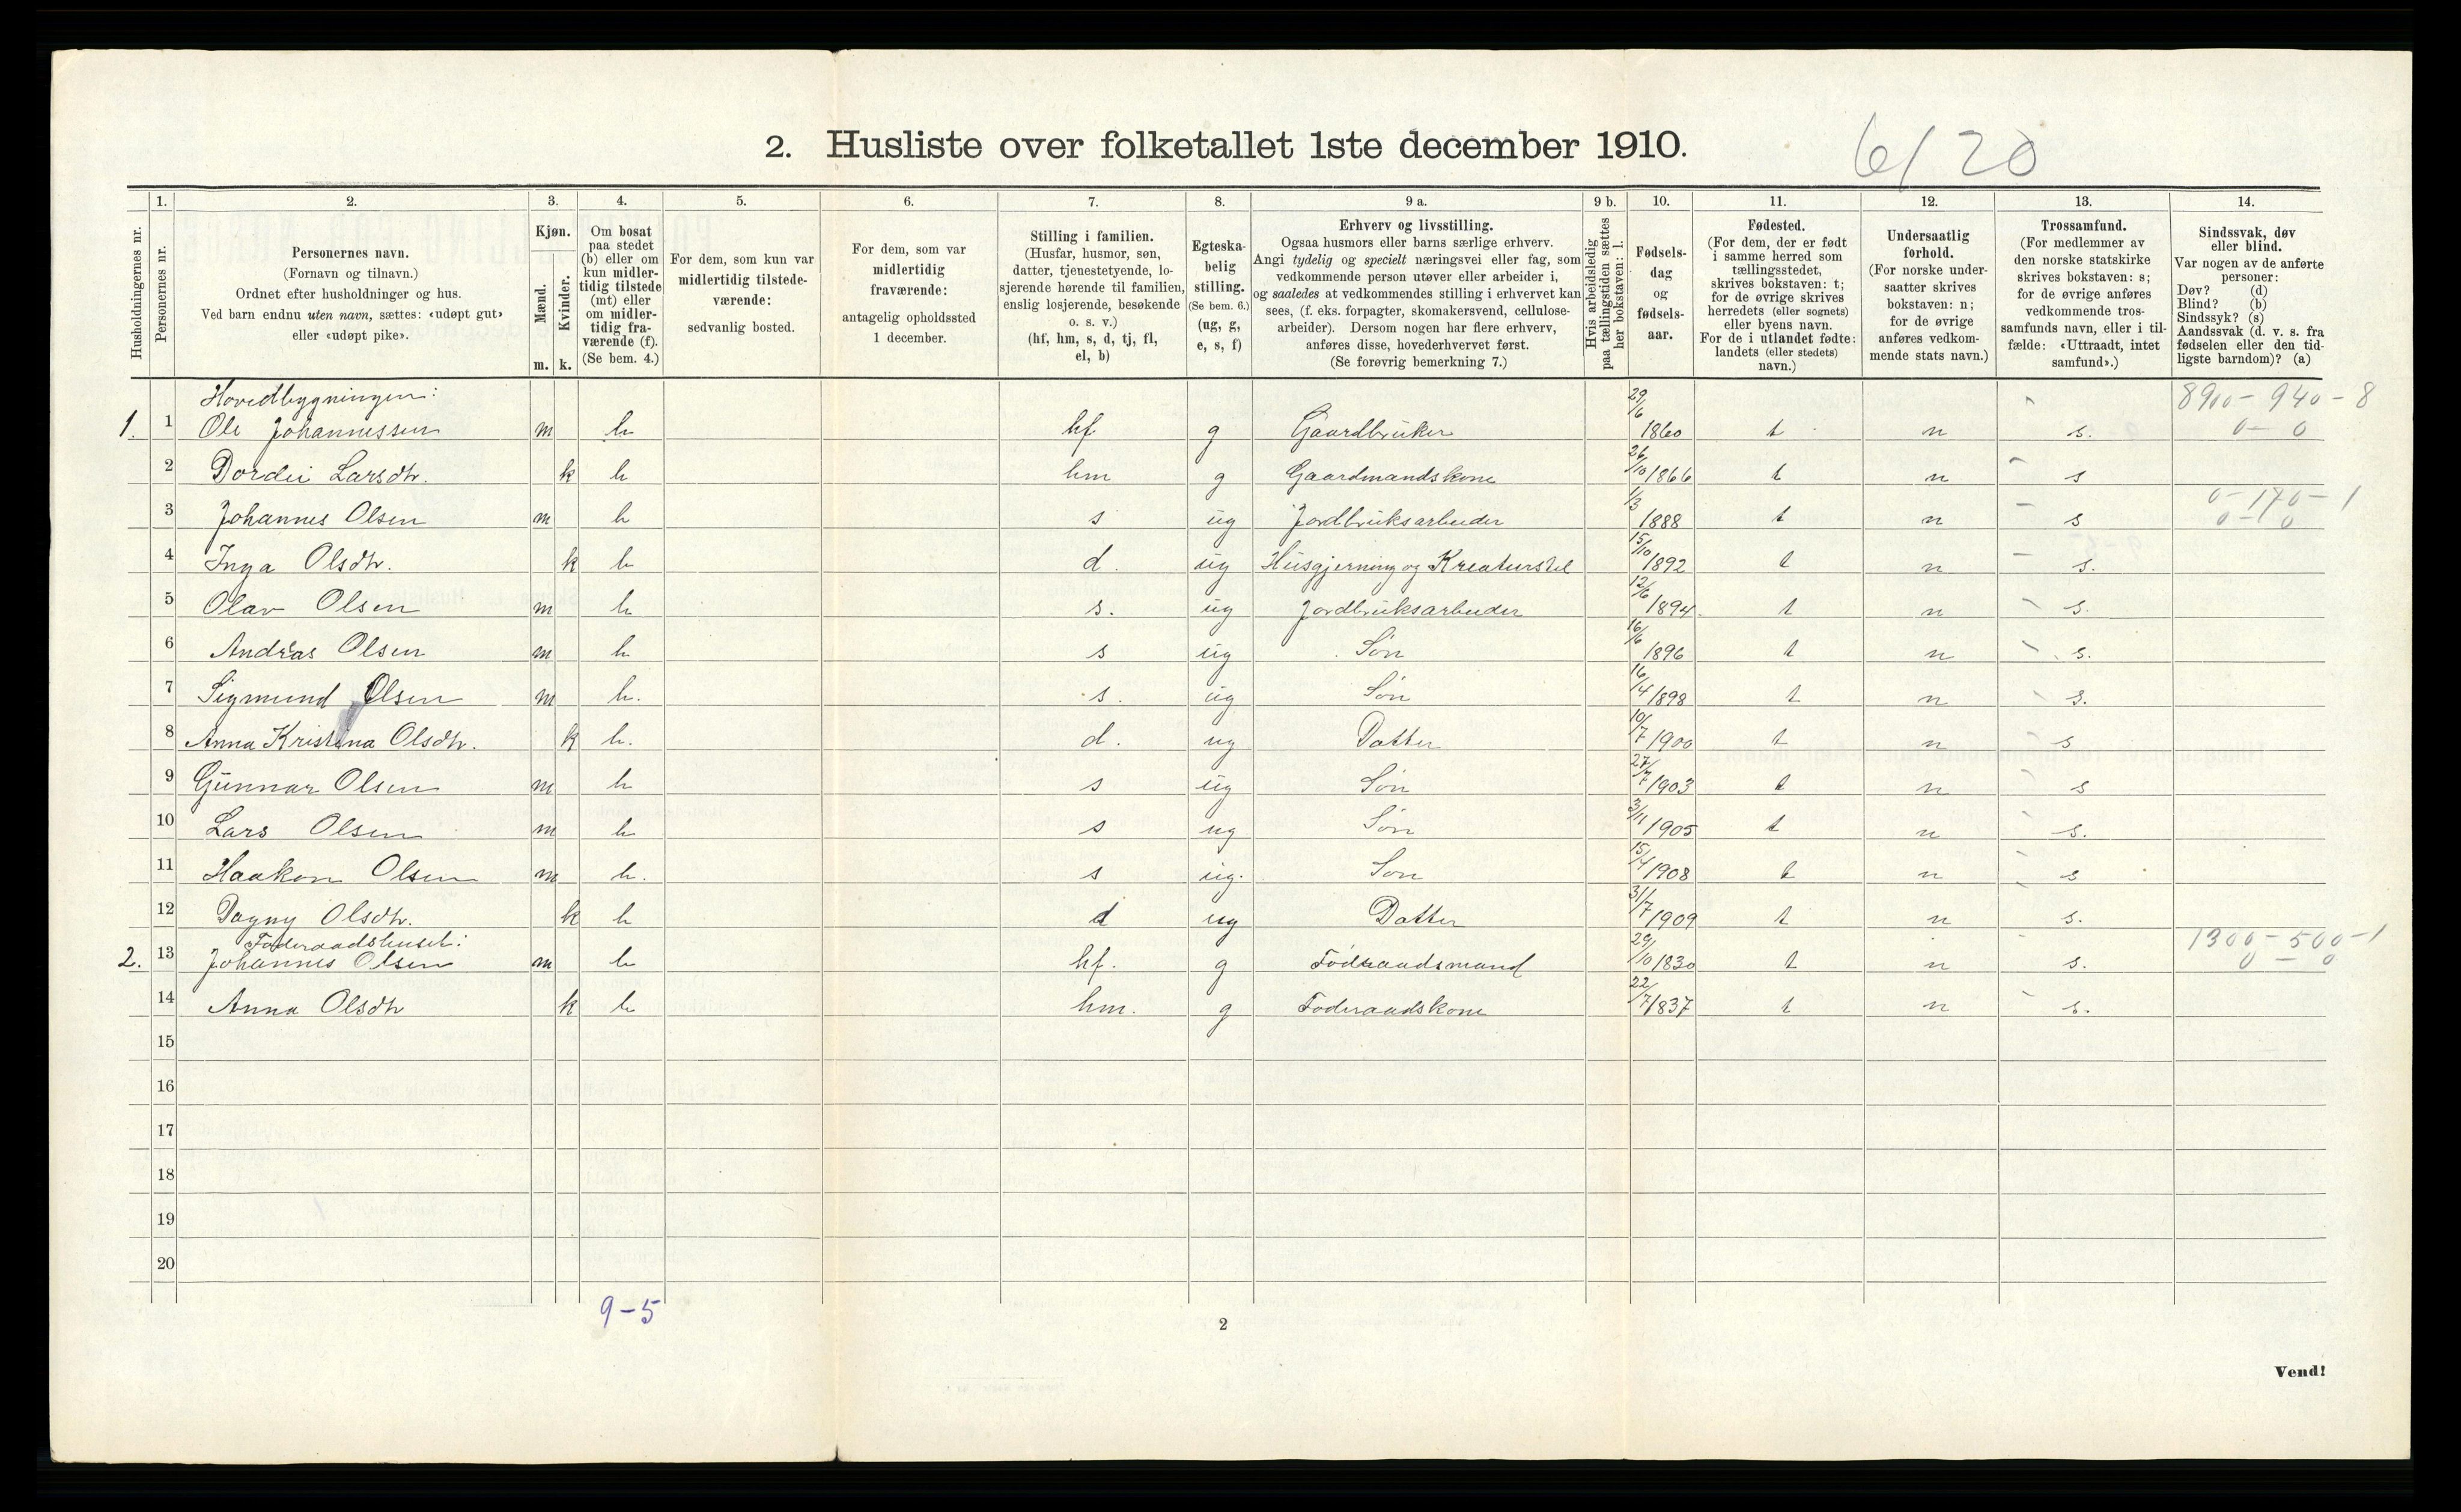 2. Husliste over folketallet 1ste december 1910.
6/20
1. 2. 3. 4. 5. 6. 7. 8. 9 a. 9 b. 10. 11. 12. 13. 14.
Husholdningernes nr.
Personernes nr.
Personernes navn.
(Fornavn og tilnavn.)
Ordnet efter husholdninger og hus.
Ved barn endnu uten navn, sættes: «udøpt gut»
eller «udøpt pike».
Kjøn.
Mænd.
Kvinder.
m. k.
Om bosat
paa stedet
(b) eller om
kun midler-
tidig tilstede
(mt) eller
om midler-
tidig fra-
værende (f).
(Se bem. 4.)
For dem, som kun var
midlertidig tilstede-
værende:
sedvanlig bosted.
For dem, som var
midlertidig
fraværende:
antagelig opholdssted
1 december.
Stilling i familien.
(Husfar, husmor, søn,
datter, tjenestetyende, lo-
sjerende hørende til familien,
enslig losjerende, besøkende
o. s. v.)
(hf, hm, s, d, tj, fl,
el, b)
Egteska-
belig
stilling.
(Se bem. 6.)
(ug, g,
e, s, f)
Erhverv og livsstilling.
Ogsaa husmors eller barns særlige erhverv.
Angi tydelig og specielt næringsvei eller fag, som
vedkommende person utøver eller arbeider i,
og saaledes at vedkommendes stilling i erhvervet kan
sees, (f. eks. forpagter, skomakersvend, cellulose-
arbeider). Dersom nogen har flere erhverv,
anføres disse, hovederhvervet først.
(Se forøvrig bemerkning 7.)
Hvis arbeidsledig
paa tællingstiden sættes
her bokstaven: l.
Fødsels-
dag
og
fødsels-
aar.
Fødested.
(For dem, der er født
i samme herred som
tællingsstedet,
skrives bokstaven: t;
for de øvrige skrives
herredets (eller sognets)
eller byens navn.
For de i utlandet fødte:
landets (eller stedets)
navn.)
Undersaatlig
forhold.
(For norske under-
saatter skrives
bokstaven: n;
for de øvrige
anføres vedkom-
mende stats navn.)
Trossamfund.
(For medlemmer av
den norske statskirke
skrives bokstaven: s;
for de øvrige anføres
vedkommende tros-
samfunds navn, eller i til-
fælde: «Uttraadt, intet
samfund».)
Sindssvak, døv
eller blind.
Var nogen av de anførte
personer:
Døv? (d)
Blind? (b)
Sindssyk? (s)
Aandssvak (d. v. s. fra
fødselen eller den tid-
ligste barndom)? (a)
Hovedbygningen: 8900 - 940 - 8
1. 1 Ole Johannessen m b hf g Gaardbruker 29/6 1860 t n s. 0 - 0
2 Dordei Larsdtr. k b hm g Gaardmandskone 26/10 1866 t n s
3 Johannes Olsen m b s ug Jordbruksarbeider 1/3 1888 t n s 0 - 170 - 1
0 - 0
4 Inga Olsdtr. k b d. ug Husgjerning og Kreaturstel 15/10 1892 t n s.
5 Olav Olsen m b s. ug Jordbruksarbeider 12/6 1894. t n s.
6 Andreas Olsen m b s ug Søn 16/6 1896 t n s.
7 Sigmund Olsen m b. s. ug Søn 16/4 1898 t n s.
8 Anna Kristina Olsdtr. k b. d. ug Datter 10/7 1900 t n s
9 Gunnar Olsen m b s ug Søn 27/7 1903 t n s
10 Lars Olsen m b s ug Søn 3/11 1905 t n s.
11 Haakon Olsen m b. s ug. Søn 15/4 1908 t n s
12 Dagny Olsdtr. k b d ug Datter 31/7 1909 t n s.
Føderaadshuset: 1300 - 500 - 1
2. 13 Johannes Olsen m b hf. g Føderaadsmand 29/10 1830 t n s. 0 - 0
14 Anna Olsdtr k b hm. g Føderaadskone 22/7 1837 t n s.
15
16
17
18
19
20
9 - 5
2
Vend!